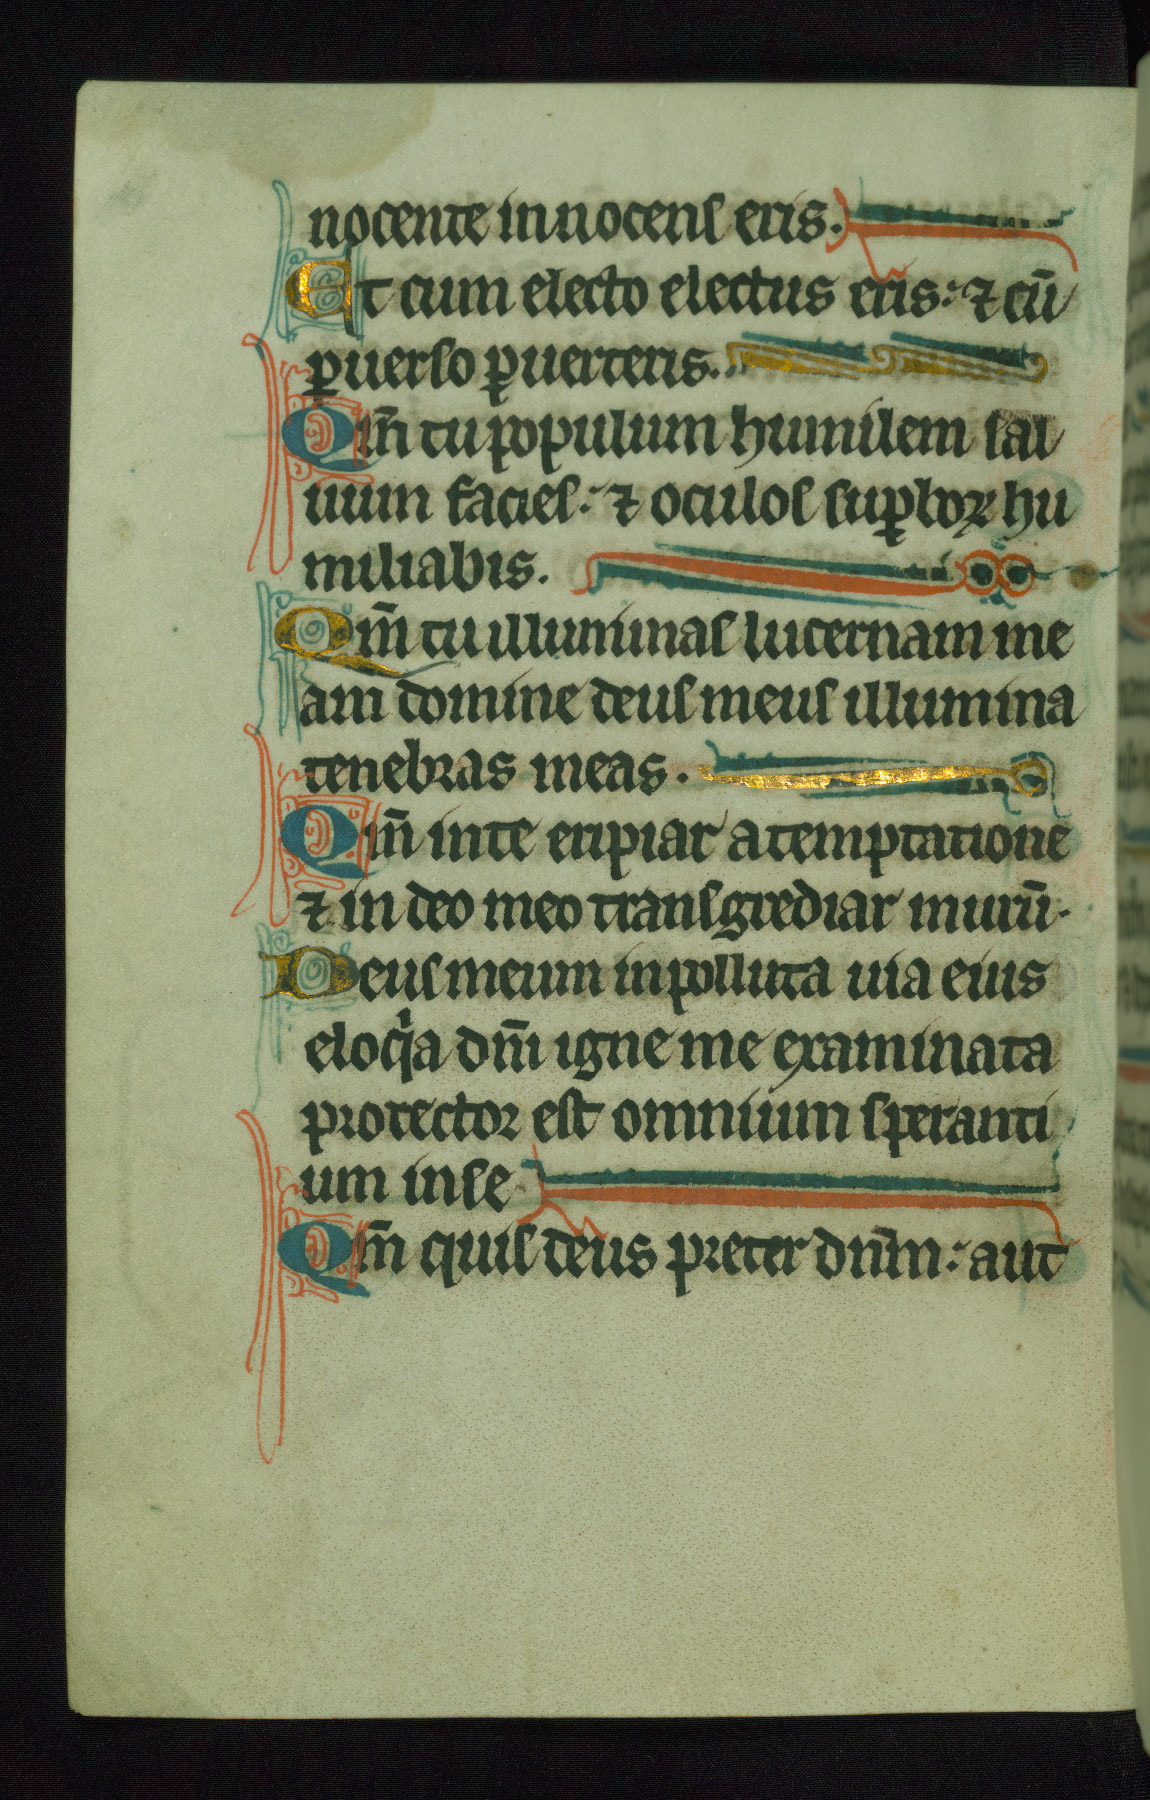 nocente innocens eris.
Et cum electo electus eris: ⁊ cū
ꝑuerso ꝑuerteris.
Qm̄ tu populum humilem sal
uum facies: ⁊ oculos suꝑboꝝ hu
miliabis.
Qm̄ tu illuminas lucernam me
am domine deus meus illumina
tenebras meas.
Qm̄ in te eripiar a temptatione
⁊ in deo meo transgrediar murū.
Deus meum inpolluta uia eius
eloqͥa dn̄i igne me examinata
protector est omnium speranti
um in se
Qm̄ quis deus preter dn̄m: aut